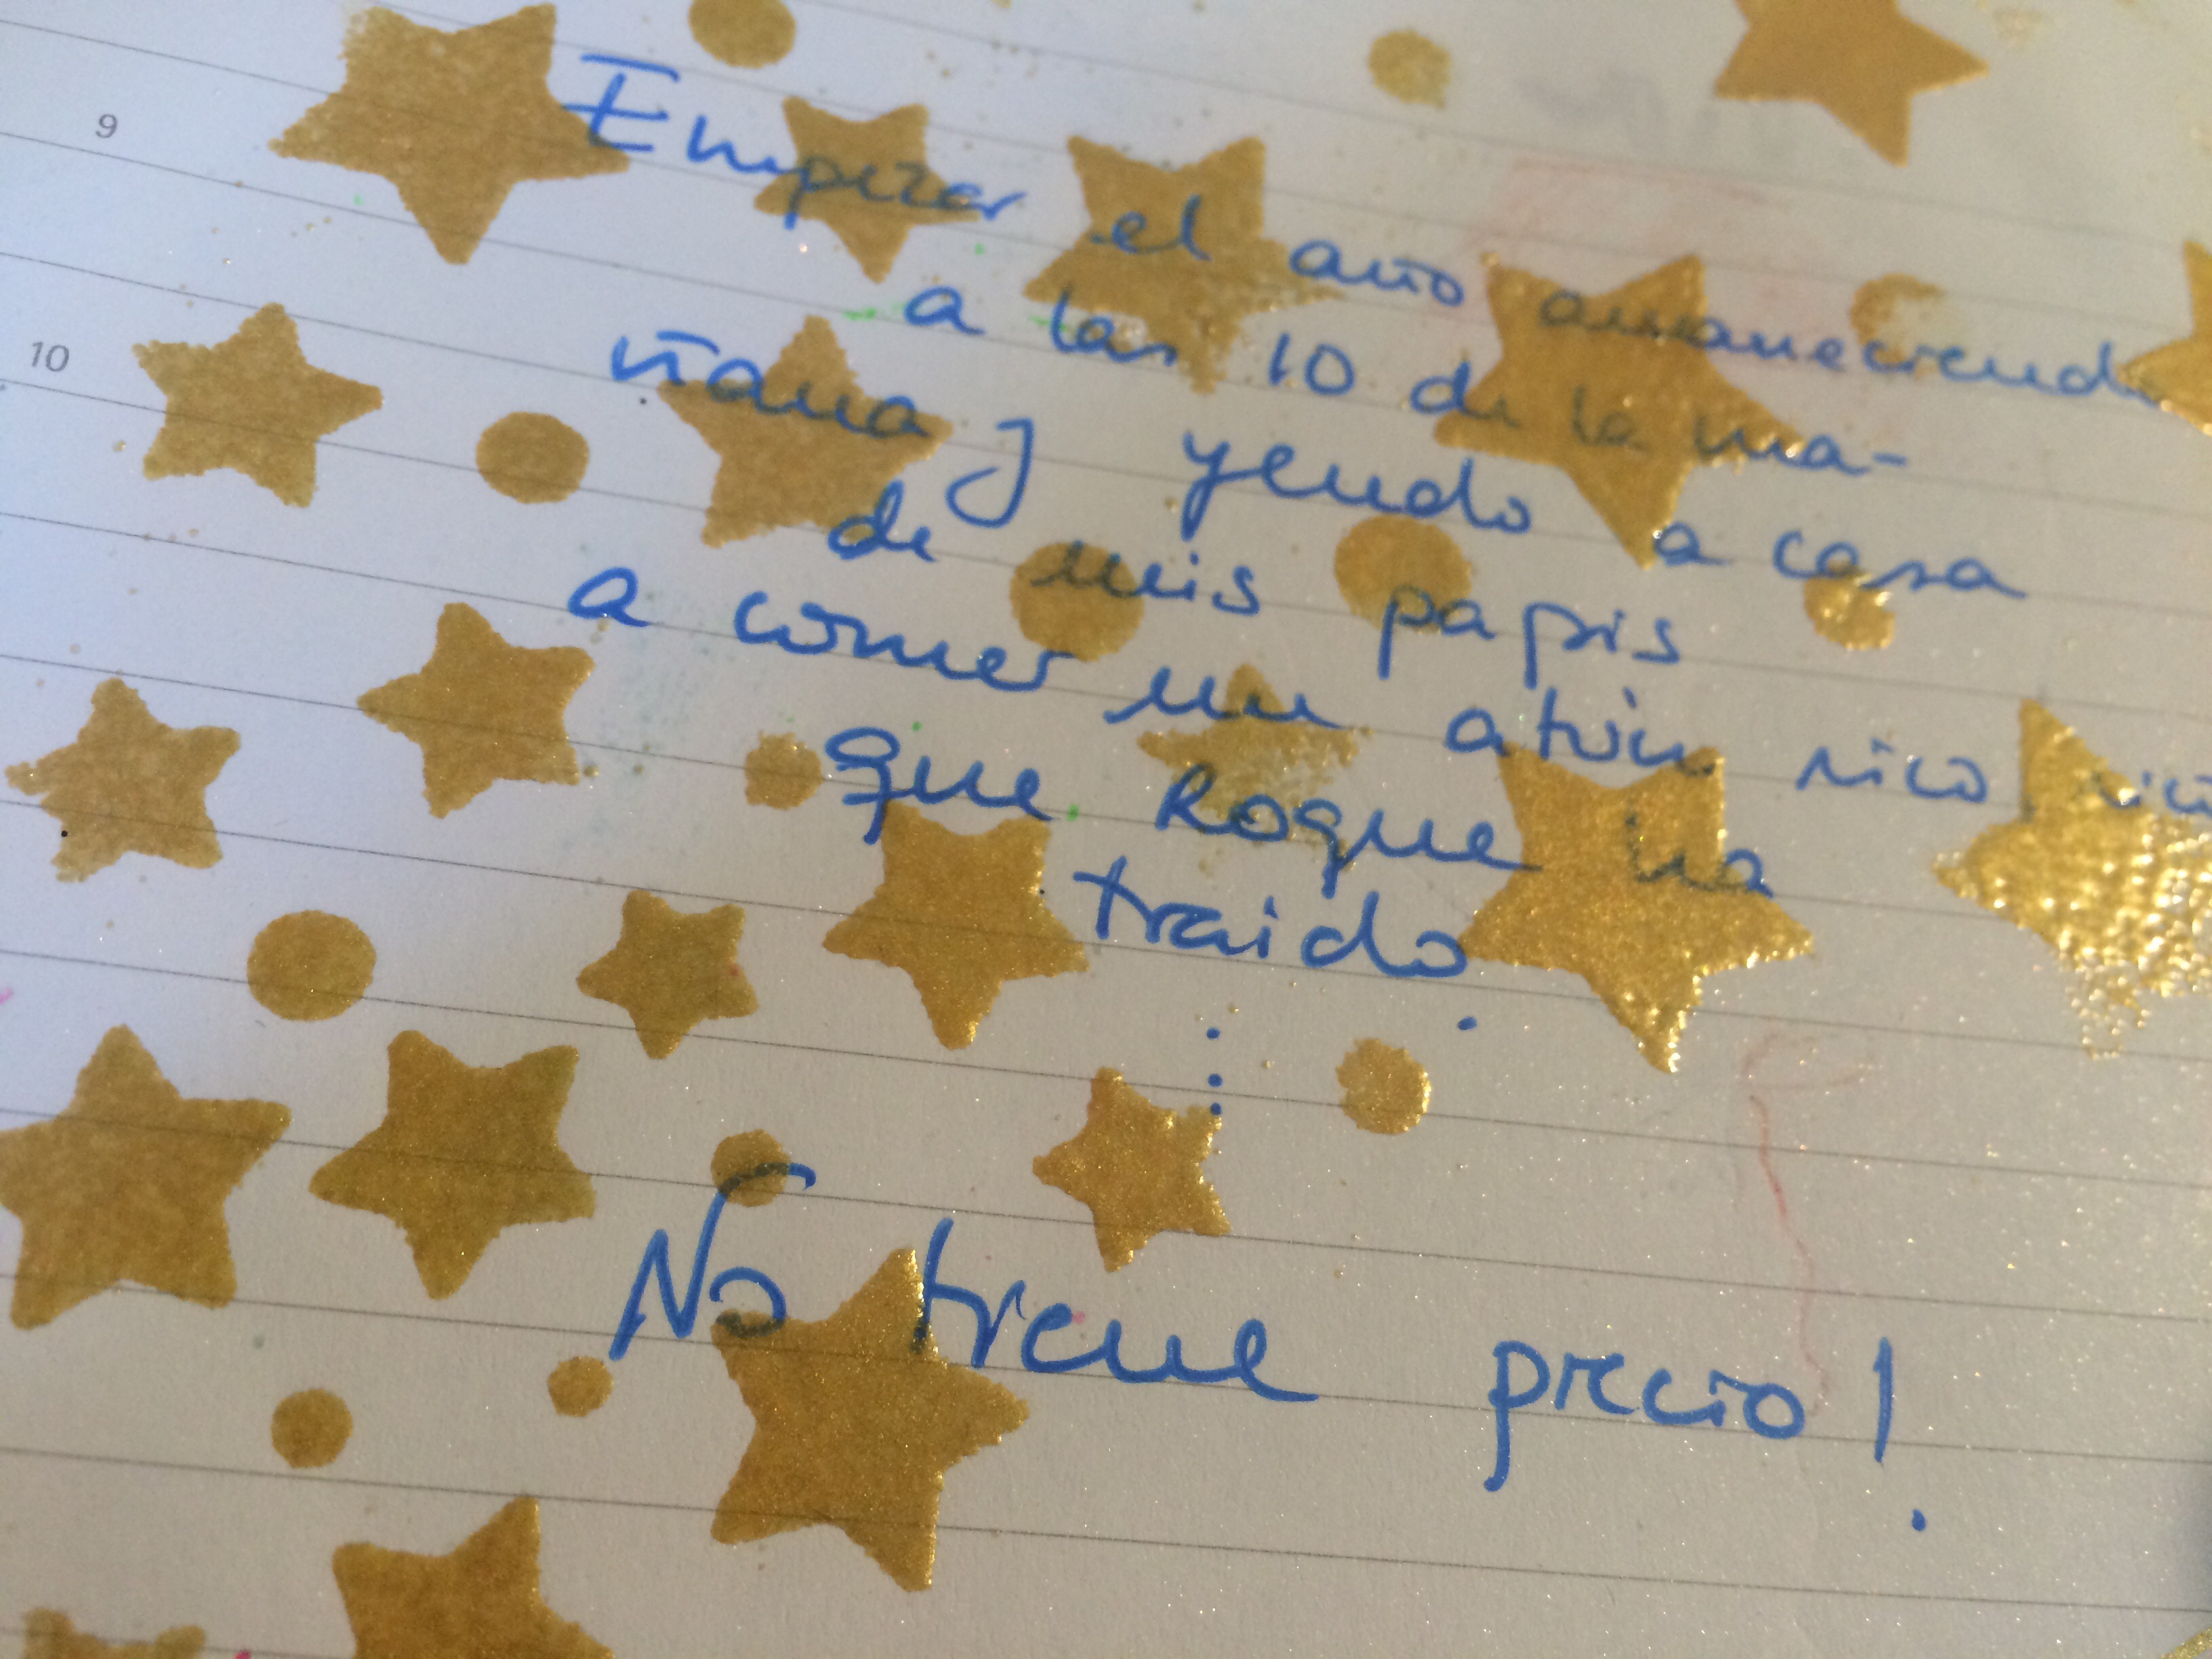 9
10
Empezar el año amaneciendo
a las 10 de la ma-
ñana y yendo a casa
de mis papis
a comer un atún rico rico
que Roque ha
traido.
...
No tiene precio!